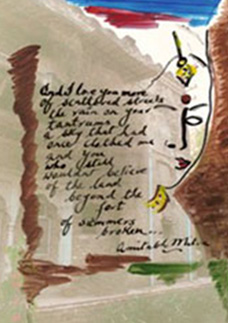 And I love you more
of scattered streets
the rain on your
tantrums
a sky that had
once clothed me
and you
who still
wouldn't believe
of the land
beyond the
fort
of summers
broken...
Amitabh